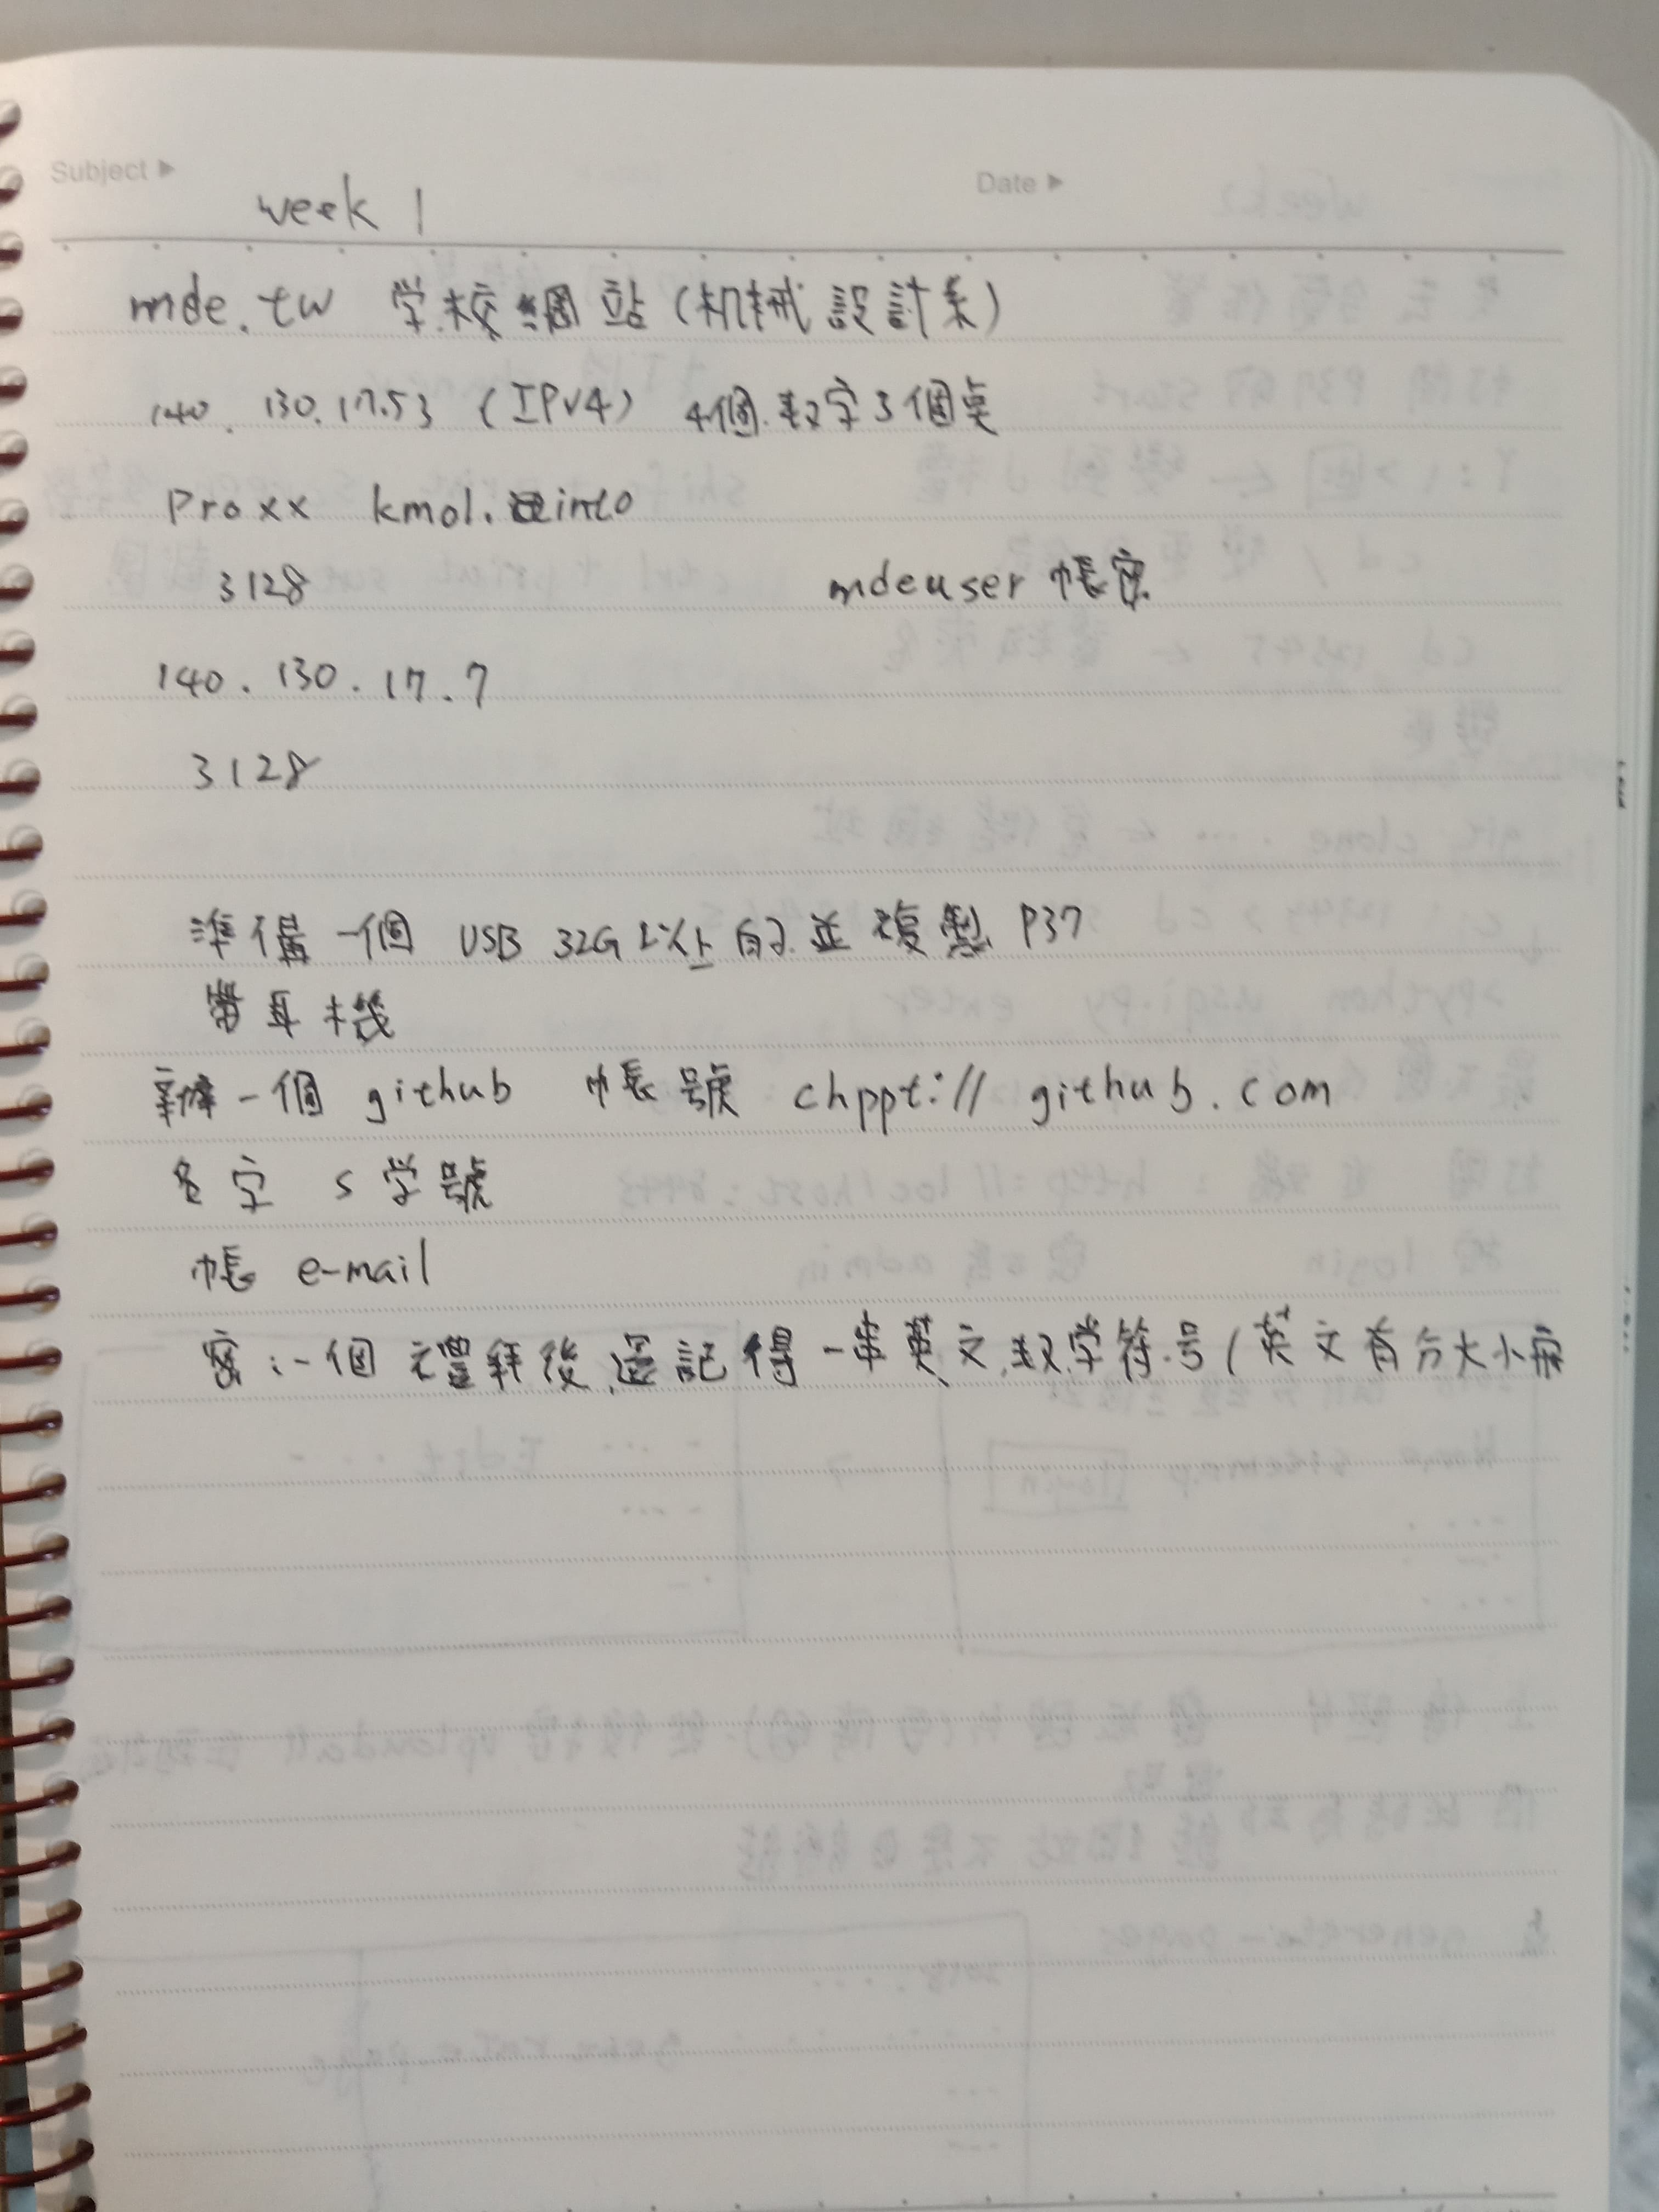 Subject ▶ Date ▶
week 1
mde.tw 学校網站(机械設計系)
140.130.17.53 (IPv4) 4個数字3個点
Proxx kmol.info
3128 mdeuser 帳密
140.130.17.7
3128
準備一個 USB 32G以上的並複製 P37
帶耳機
辦一個 github 帳號 chppt://github.com
名字 s学號
帳 e-mail
密:一個禮拜後還記得一串英文数学符号(英文有分大小寫